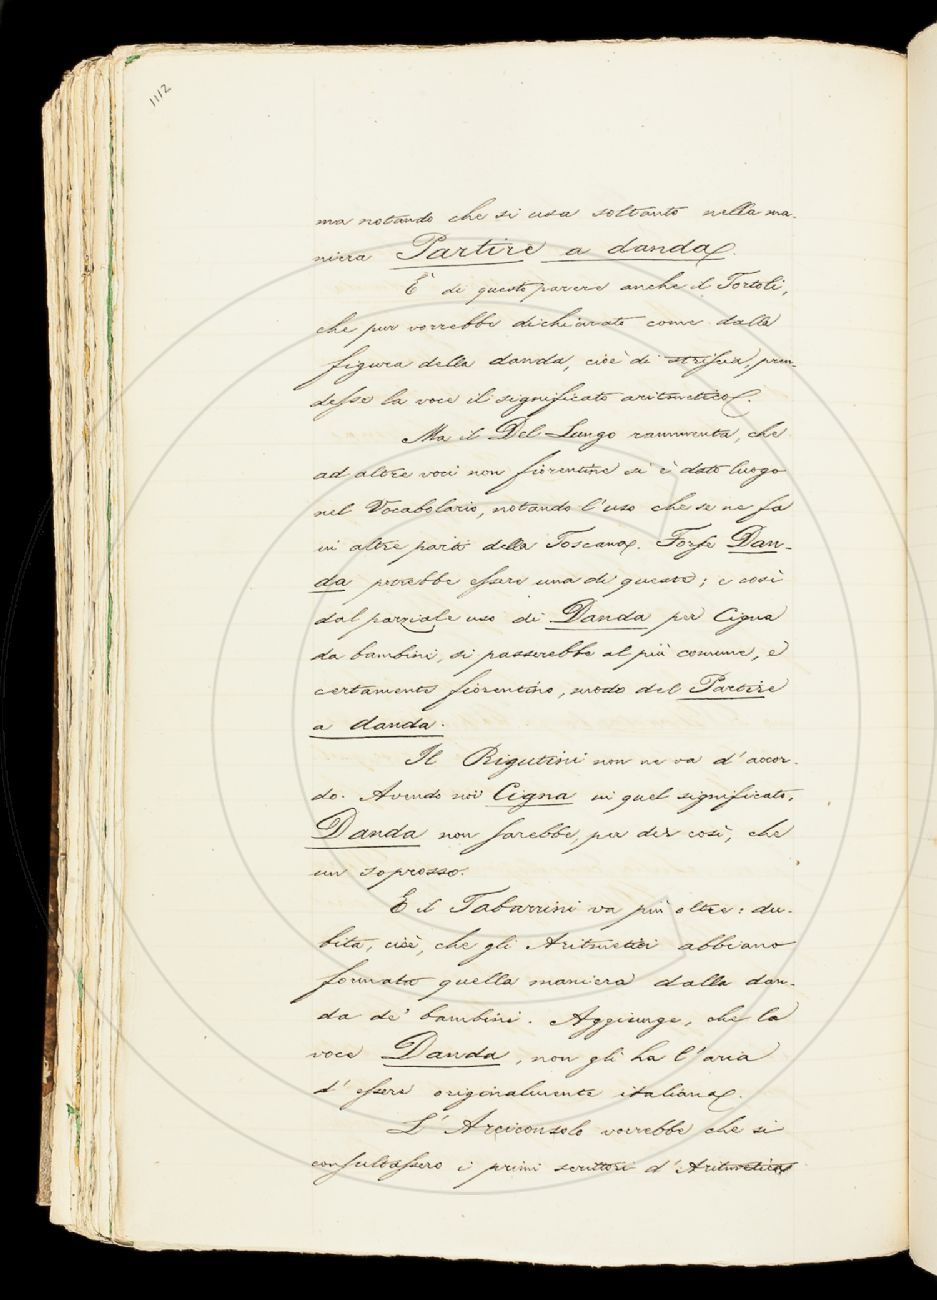 1112
ma notando che si usa soltanto nella ma-
niera Partire a danda.
È di questo parere anche il Tortoli,
che pur vorrebbe dichiarato come dalla
figura della danda, cioè di striscia, pren-
desse la voce il significato aritmetico.
Ma il Del-Lungo rammenta, che
ad altre voci non fiorentine si è dato luogo
nel Vocabolario, notando l'uso che se ne fa
in altre parti della Toscana. Forse Dan-
da potrebbe essere una di queste; e così
dal parziale uso di Danda per Cigna
da bambini, si passerebbe al più comune, e
certamente fiorentino, modo del Partire
a danda.
Il Rigutini non ne va d'accor-
do. Avendo noi Cigna in quel significato,
Danda non sarebbe, per dir così, che
un soprosso.
E il Tabarrini va più oltre: du-
bita, cioè, che gli Aritmetici abbiano
formato quella maniera dalla dan-
da de' bambini. Aggiunge, che la
voce Danda, non gli ha l'aria
d'essere originalmente italiana.
L'Arciconsolo vorrebbe che si
consultassero i primi scrittori d'Aritmetica